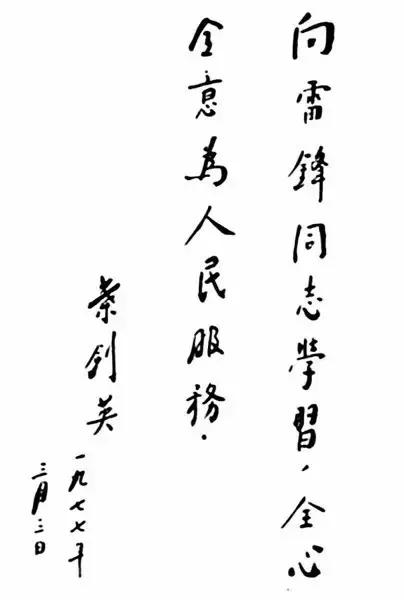 向雷鋒同志學習，全心
全意為人民服務.
葉剑英
一九七七年
三月三日